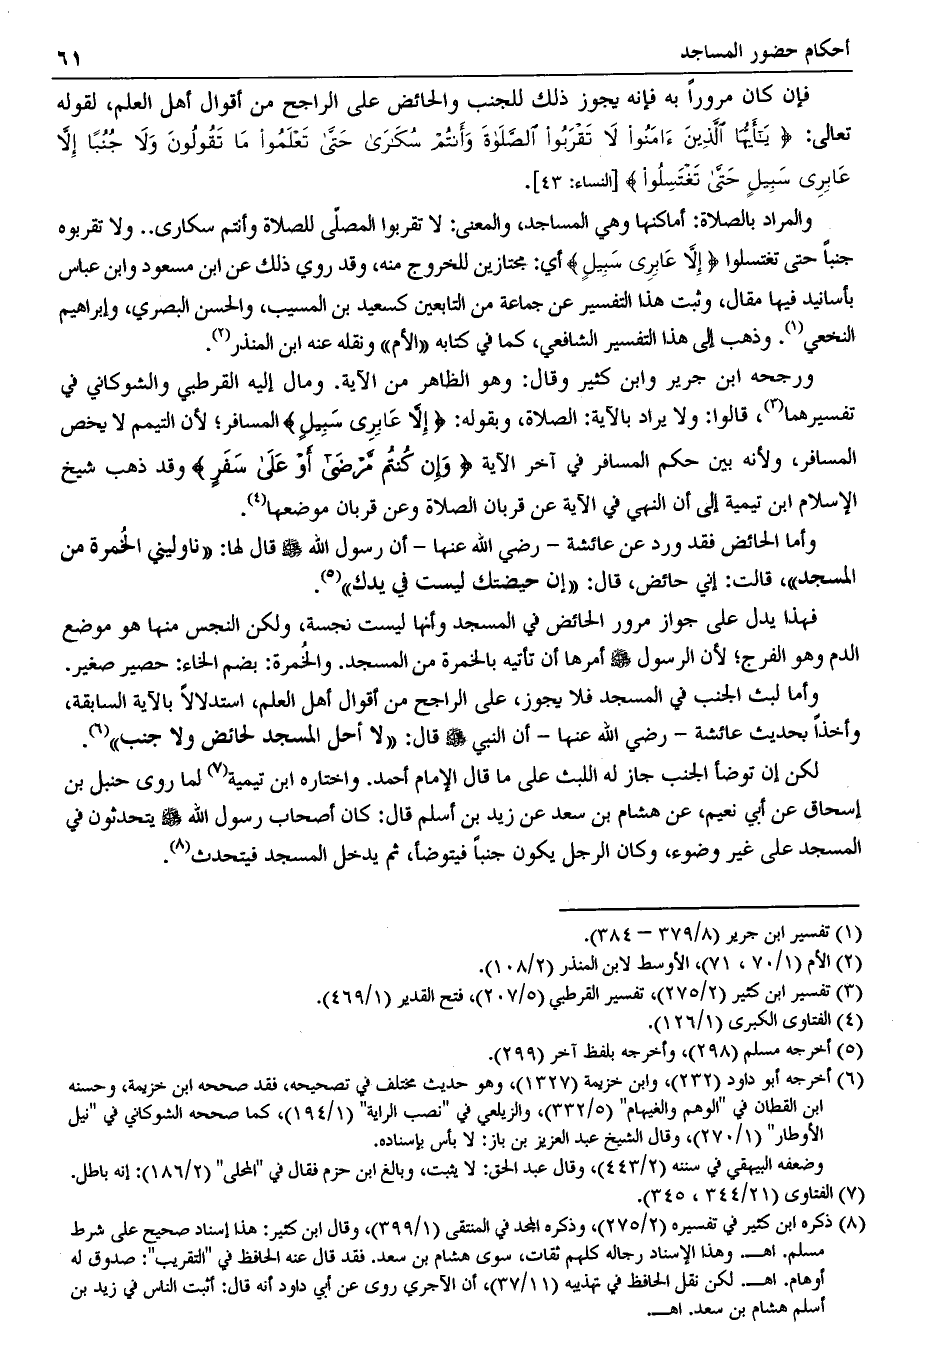 أحكام حضور المساجد
٦١
فإن كان مروراً به فإنه يجوز ذلك للجنب والحائض على الراجح من أقوال أهل العلم، لقوله
تعالى: ﴿ يَٰٓأَيُّهَا ٱلَّذِينَ ءَامَنُواْ لَا تَقۡرَبُواْ ٱلصَّلَوٰةَ وَأَنتُمۡ سُكَٰرَىٰ حَتَّىٰ تَعۡلَمُواْ مَا تَقُولُونَ وَلَا جُنُبًا إِلَّا
عَابِرِى سَبِيلٍ حَتَّىٰ تَغۡتَسِلُواْ ﴾ [النساء: ٤٣].
والمراد بالصلاة: أماكنها وهي المساجد، والمعنى: لا تقربوا المصلّى للصلاة وأنتم سكارى.. ولا تقربوه
جنباً حتى تغتسلوا ﴿ إِلَّا عَابِرِى سَبِيلٍ ﴾ أي: مجتازين للخروج منه، وقد روي ذلك عن ابن مسعود وابن عباس
بأسانيد فيها مقال، وثبت هذا التفسير عن جماعة من التابعين كسعيد بن المسيب، والحسن البصري، وإبراهيم
النخعي(١). وذهب إلى هذا التفسير الشافعي، كما في كتابه «الأم» ونقله عنه ابن المنذر(٢).
ورجحه ابن جرير وابن كثير وقال: وهو الظاهر من الآية. ومال إليه القرطبي والشوكاني في
تفسيرهما(٣)، قالوا: ولا يراد بالآية: الصلاة، وبقوله: ﴿ إِلَّا عَابِرِى سَبِيلٍ ﴾ المسافر؛ لأن التيمم لا يخص
المسافر، ولأنه بين حكم المسافر في آخر الآية ﴿ وَإِن كُنتُم مَّرۡضَىٰٓ أَوۡ عَلَىٰ سَفَرٍ ﴾ وقد ذهب شيخ
الإسلام ابن تيمية إلى أن النهي في الآية عن قربان الصلاة وعن قربان موضعها(٤).
وأما الحائض فقد ورد عن عائشة – رضي الله عنها – أن رسول الله ﷺ قال لها: «ناوليني الخُمرة من
المسجد»، قالت: إني حائض، قال: «إن حيضتك ليست في يدك»(٥).
فهذا يدل على جواز مرور الحائض في المسجد وأنها ليست نجسة، ولكن النجس منها هو موضع
الدم وهو الفرج؛ لأن الرسول ﷺ أمرها أن تأتيه بالخمرة من المسجد. والخُمرة: بضم الخاء: حصير صغير.
وأما لبث الجنب في المسجد فلا يجوز، على الراجح من أقوال أهل العلم، استدلالاً بالآية السابقة،
وأخذاً بحديث عائشة – رضي الله عنها – أن النبي ﷺ قال: «لا أحل المسجد لحائض ولا جنب»(٦).
لكن إن توضأ الجنب جاز له اللبث على ما قال الإمام أحمد. واختاره ابن تيمية(٧) لما روى حنبل بن
إسحاق عن أبي نعيم، عن هشام بن سعد عن زيد بن أسلم قال: كان أصحاب رسول الله ﷺ يتحدثون في
المسجد على غير وضوء، وكان الرجل يكون جنباً فيتوضأ، ثم يدخل المسجد فيتحدث(٨).
(١) تفسير ابن جرير (٣٧٩/٨ – ٣٨٤).
(٢) الأم (٧٠/١ ، ٧١)، الأوسط لابن المنذر (١٠٨/٢).
(٣) تفسير ابن كثير (٢٧٥/٢)، تفسير القرطبي (٢٠٧/٥)، فتح القدير (٤٦٩/١).
(٤) الفتاوى الكبرى (١٢٦/١).
(٥) أخرجه مسلم (٢٩٨)، وأخرجه بلفظ آخر (٢٩٩).
(٦) أخرجه أبو داود (٢٣٢)، وابن خزيمة (١٣٢٧)، وهو حديث مختلف في تصحيحه، فقد صححه ابن خزيمة، وحسنه
ابن القطان في "الوهم والغيهام" (٣٣٢/٥)، والزيلعي في "نصب الراية" (١٩٤/١)، كما صححه الشوكاني في "نيل
الأوطار" (٢٧٠/١)، وقال الشيخ عبد العزيز بن باز: لا بأس بإسناده.
وضعفه البيهقي في سننه (٤٤٣/٢)، وقال عبد الحق: لا يثبت، وبالغ ابن حزم فقال في "المحلى" (١٨٦/٢): إنه باطل.
(٧) الفتاوى (٣٤٤/٢١ ، ٣٤٥).
(٨) ذكره ابن كثير في تفسيره (٢٧٥/٢)، وذكره المجد في المنتقى (٣٩٩/١)، وقال ابن كثير: هذا إسناد صحيح على شرط
مسلم. اهـ. وهذا الإسناد رجاله كلهم ثقات، سوى هشام بن سعد. فقد قال عنه الحافظ في "التقريب": صدوق له
أوهام. اهـ. لكن نقل الحافظ في تهذيبه (٣٧/١١)، أن الآجري روى عن أبي داود أنه قال: أثبت الناس في زيد بن
أسلم هشام بن سعد. اهـ.